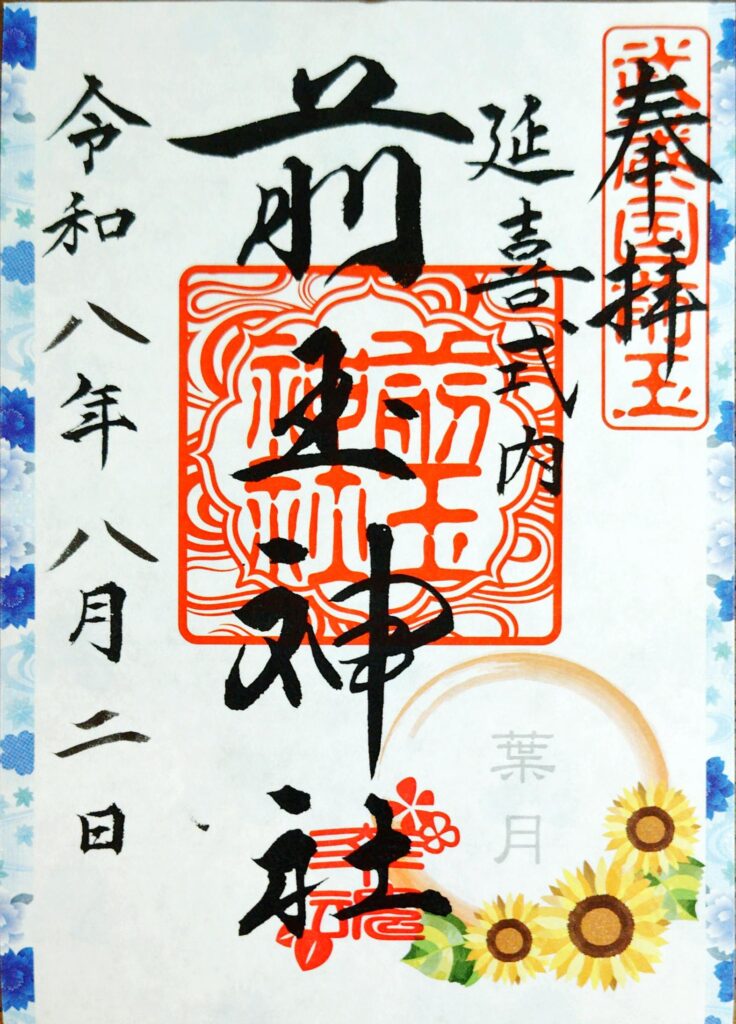 奉拝
武蔵国埼玉
延喜式内
前玉神社
前玉
神社
令和八年八月二日
葉月